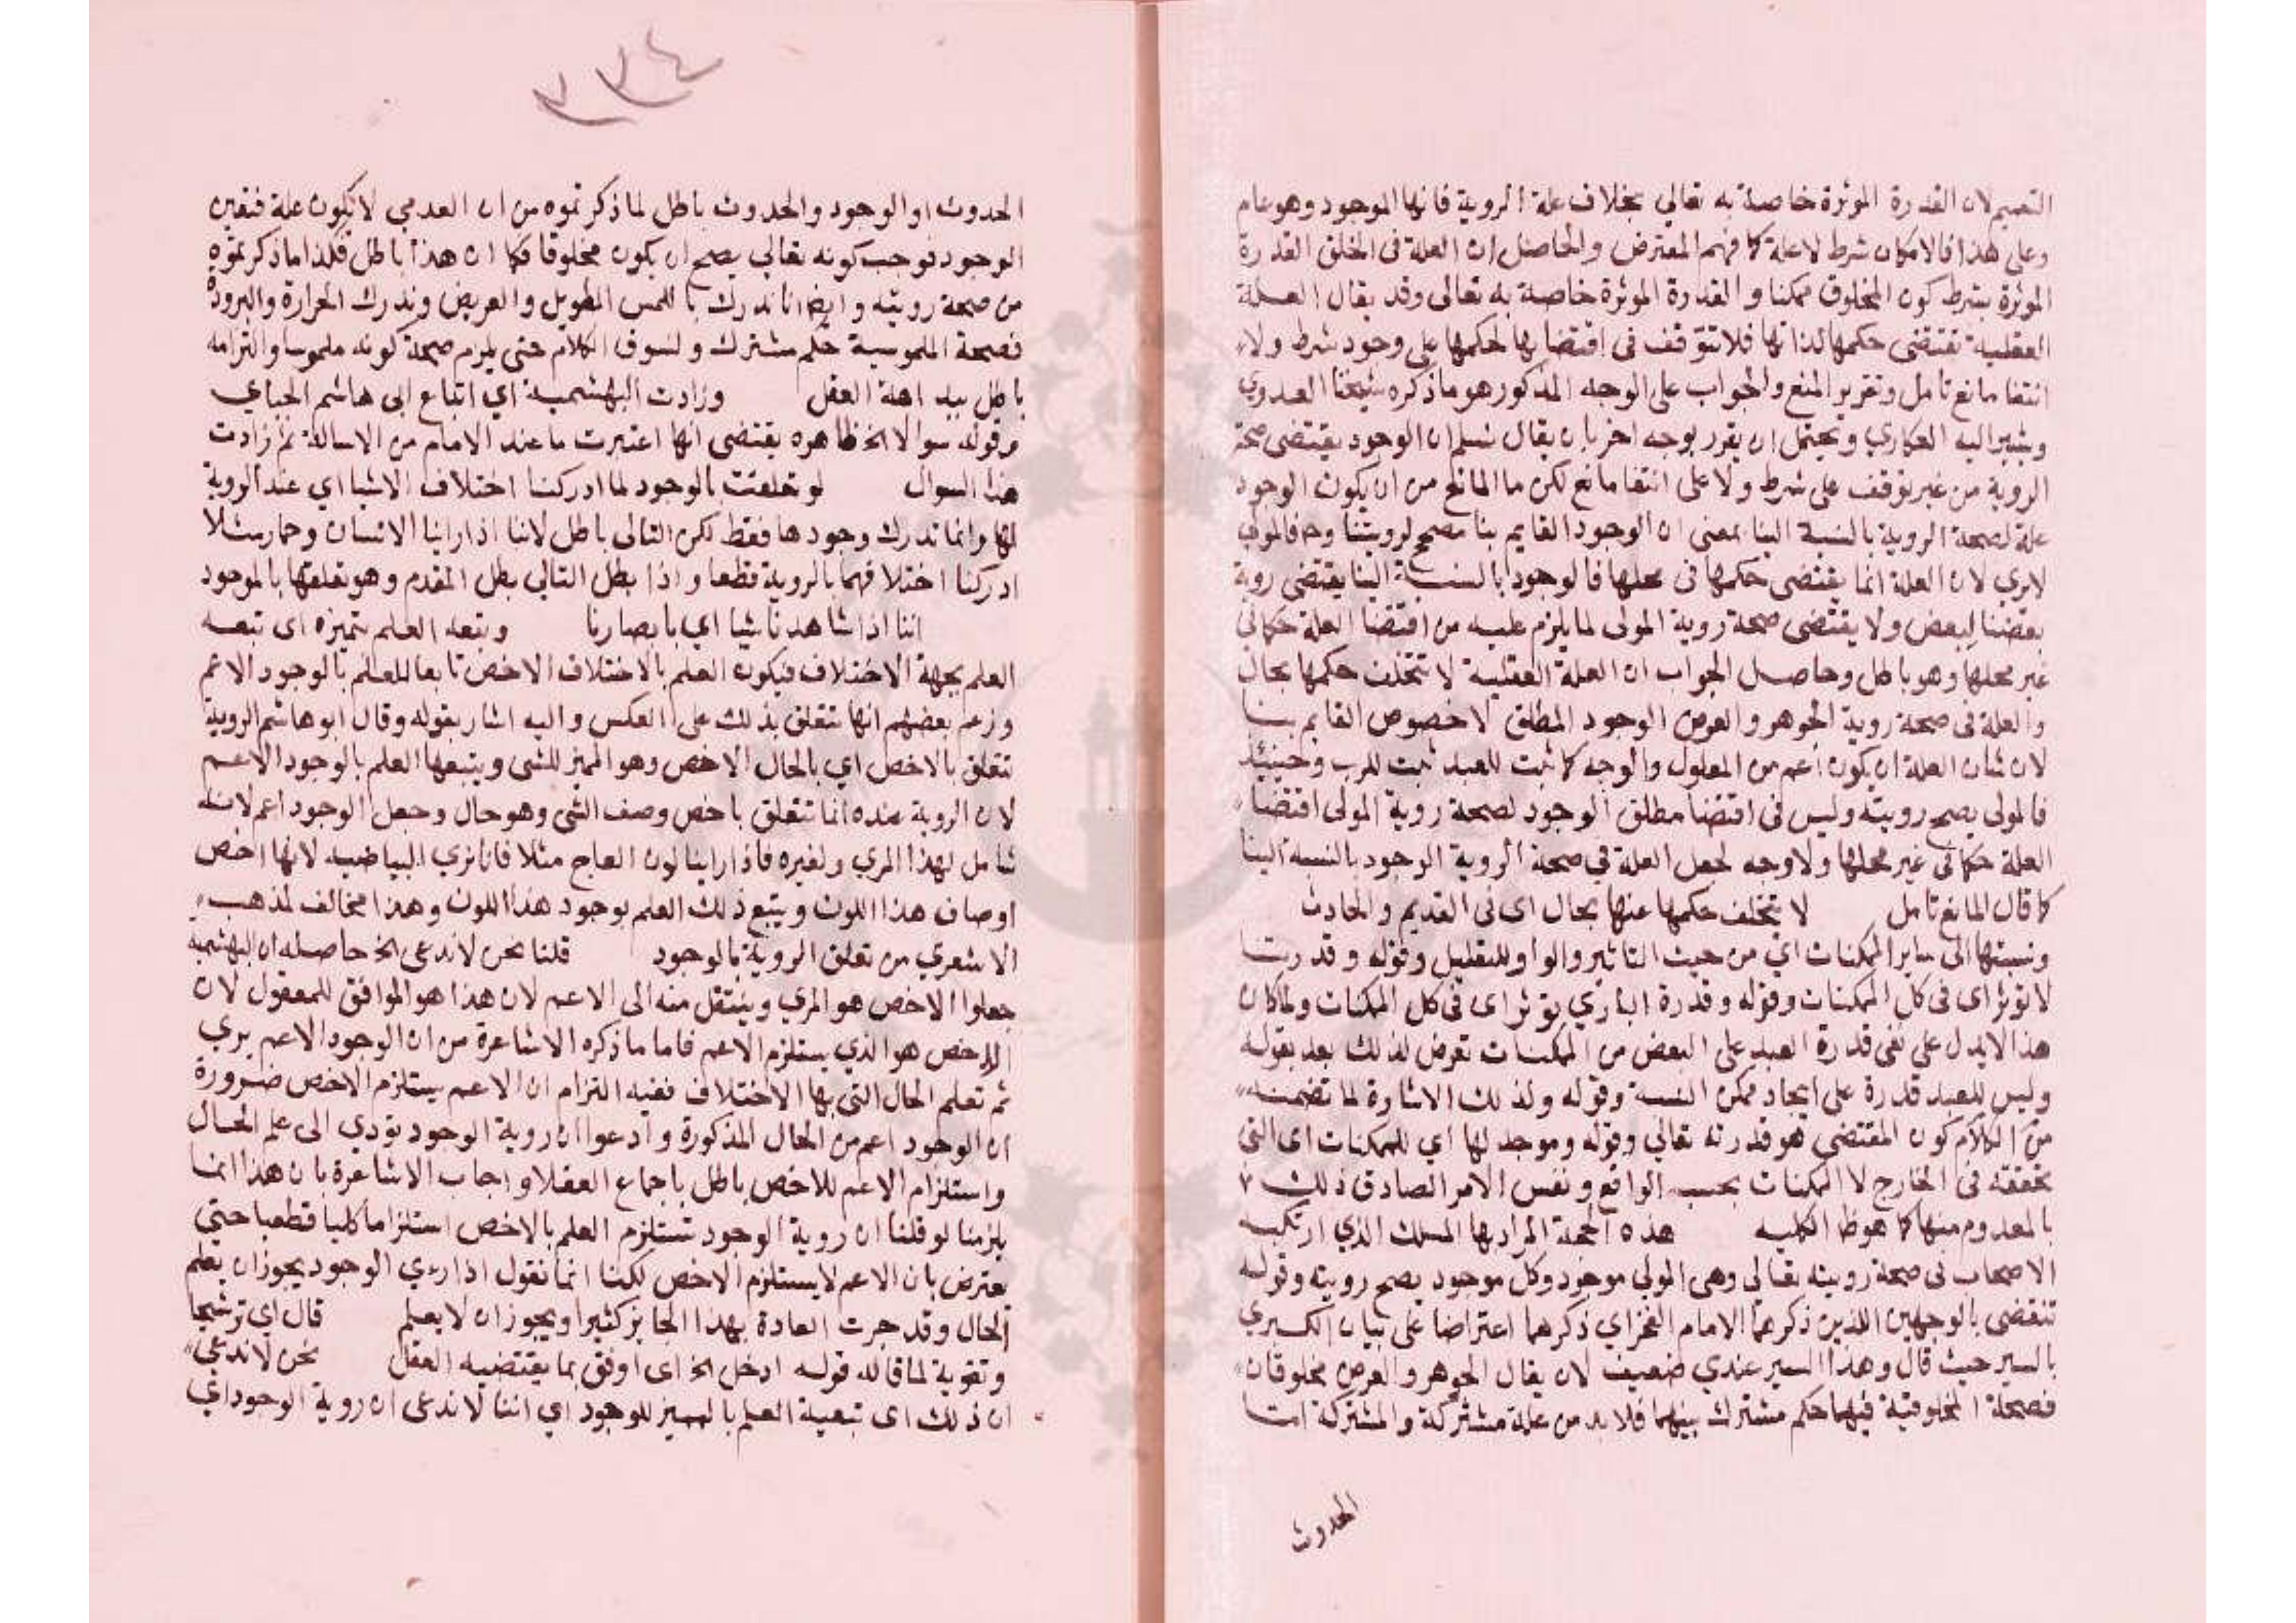 التعميم لان القدرة الموثرة خاصة به تعالي بخلاف علة الروية فانها الموجود وهو عام
وعلى هذا فالامكان شرط لا علة كما فهم المعترض والحاصل ان العلة فى الخلق القدرة
الموثرة بشرط كون المخلوق ممكنا والقدرة الموثرة خاصة به تعالى وقد يقال العلة
العقلية تقتضى حكمها لذاتها فلا تتوقف فى اقتضايها لحكمها على وجود شرط ولا
انتفا مانع تامل وتقرير المنع والجواب على الوجه المذكور هو ما ذكره شيخنا العدوي
ويشير اليه العكاري ويحتمل ان يقرر بوجه اخر بان يقال نسلم ان الوجود يقتضى صحة
الروية من غير توقف على شرط ولا على انتفا مانع لكن ما المانع من ان يكون الوجود
علة لصحة الروية بالنسبة الينا بمعنى ان الوجود القايم بنا مصحح لرويتنا وح فالمولى
لا يري لان العلة انما يقتضى حكمها فى محلها فالوجود بالنسبة الينا يقتضى روية
بعضنا لبعض ولا يقتضى صحة روية المولى لما يلزم عليه من اقتضا العلة حكما فى
غير محلها وهو باطل وحاصل الجواب ان العلة العقلية لا تتخلف حكمها بحال
والعلة فى صحة روية الجوهر والعرض الوجود المطلق لا خصوص القايم بنا
لان شان العلة ان يكون اعم من المعلول والوجه كما ثبت للعبد ثبت للرب وحينيذ
فالمولى يصح رويته وليس فى اقتضا مطلق الوجود لصحة روية المولى اقتضا
العلة حكما فى غير محلها ولا وجه لجعل العلة في صحة الروية الوجود بالنسبة الينا
كما قال المانع تامل لا يتخلف حكمها عنها بحال اى فى القديم والحادث
ونسبتها الى ساير الممكنات اي من حيث التاثير والواو للتعليل وقوله وقدرتنا
لا توثر اى فى كل الممكنات وقوله وقدرة الباري توثر اى فى كل الممكنات ولما كان
هذا لا يدل على نفى قدرة العبد على البعض من الممكنات تعرض لذلك بعد بقوله
وليس للعبد قدرة على ايجاد ممكن النسبة وقوله ولذلك الاشارة لما تضمنه
من الكلام كون المقتضي هو قدرته تعالي وقوله وموجد لها اي للممكنات اى التى
تحققه فى الخارج لا الممكنات بحسب الواقع ونفس الامر الصادق ذلك
بالمعدوم منها كما هو ظ الكليه هذه الحجة المراد بها المسلك الذي ارتكبه
الاصحاب فى صحة رويته تعالى وهى المولى موجود وكل موجود يصح رويته وقوله
تنقضى بالوجهين اللذين ذكرهما الامام الفخر اي ذكرهما اعتراضا على بيان الكبري
بالسبر حيث قال وهذا السبر عندي ضعيف لان يقال الجوهر والعرض مخلوقان
فصحة المخلوقية فيهما حكم مشترك بينهما فلا بد من علة مشتركة والمشتركة امتا
الحدوث
٢٣٤
الحدوث او الوجود والحدوث باطل لما ذكرتموه من ان العدمي لا يكون علة فتعين
الوجود فوجب كونه تعالي يصح ان يكون مخلوقا فكما ان هذا باطل فكذا ما ذكرتموه
من صحة رويته وايضا انا ندرك باللمس الطويل والعريض وندرك الحرارة والبرودة
فصحة الملموسية حكم مشترك ونسوق الكلام حتى يلزم صحة كونه ملموسا والتزامه
باطل ببداهة العقل وزادت البهشمية اي اتباع ابى هاشم الجباي
وقوله سوالا الخ ظاهره يقتضى انها اعتبرت ما عند الامام من الاسالة ثم زادت
هذا السوال لو تعلقت بالوجود لما ادركنا اختلاف الاشيا اي عند الروية
لها وانما تدرك وجودها فقط لكن التالى باطل لاننا اذا راينا الانسان وحمار مثلا
ادركنا اختلافهما بالروية قطعا واذا بطل التالي بطل المقدم وهو تعلقها بالموجود
اننا اذا شاهدنا شيا اي بابصارنا وتبعه العلم بتميزه اى تبعه
العلم بجهة الاختلاف فيكون العلم بالاختلاف الاخص تابعا للعلم بالوجود الاعم
وزعم بعضهم انها تتعلق بذلك على العكس واليه اشار بقوله وقال ابو هاشم الروية
تتعلق بالاخص اي بالحال الاخص وهو المميز للشى ويتبعها العلم بالوجود الاعم
لان الروية عنده انما تتعلق باخص وصف الشى وهو حال وجعل الوجود اعم لانه
شامل لهذا المري ولغيره فاذا راينا لون العاج مثلا فانا نري البياضيه لانها اخص
اوصاف هذا اللون ويتبع ذلك العلم بوجود هذا اللون وهذا مخالف لمذهب
الاشعري من تعلق الروية بالوجود قلنا نحن لا ندعى الخ حاصله ان البهشمية
جعلوا الاخص هو المري وينتقل منه الى الاعم لان هذا هو الموافق للمعقول لان
الاخص هو الذي يستلزم الاعم فاما ما ذكره الاشاعرة من ان الوجود الاعم يري
ثم تعلم الحال التى بها الاختلاف ففيه التزام ان الاعم يستلزم الاخص ضرورة
ان الوجود اعم من الحال المذكورة وادعوا ان روية الوجود تودي الى علم الحال
واستلزام الاعم للاخص باطل باجماع العقلا واجاب الاشاعرة بان هذا انما
يلزمنا لو قلنا ان روية الوجود تستلزم العلم بالاخص استلزاما كليا قطعيا حتي
يعترض بان الاعم لا يستلزم الاخص لكنا انما نقول اذا رءي الوجود يجوز ان يعلم
الحال وقد جرت العادة بهذا الجايز كثيرا ويجوز ان لا يعلم قال اي ترشيحا
وتقوية لما قاله قوله ادخل الخ اى اوفق بما يقتضيه العقل نحن لا ندعي
ان ذلك اى تبعية العلم بالمميز للوجود اي اننا لا ندعى ان روية الوجود اي